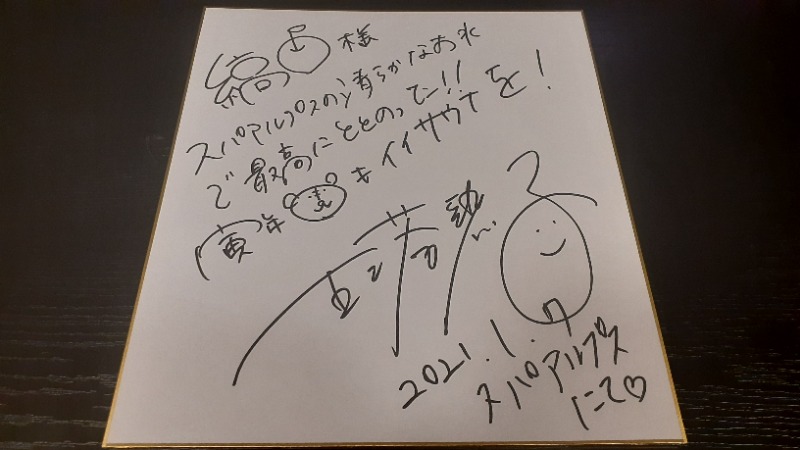 様
スパアルプスの清らかなお水
で最高にととのってン!!
寅年もイイサウナを!
2021.1.7
スパアルプス
にて♡